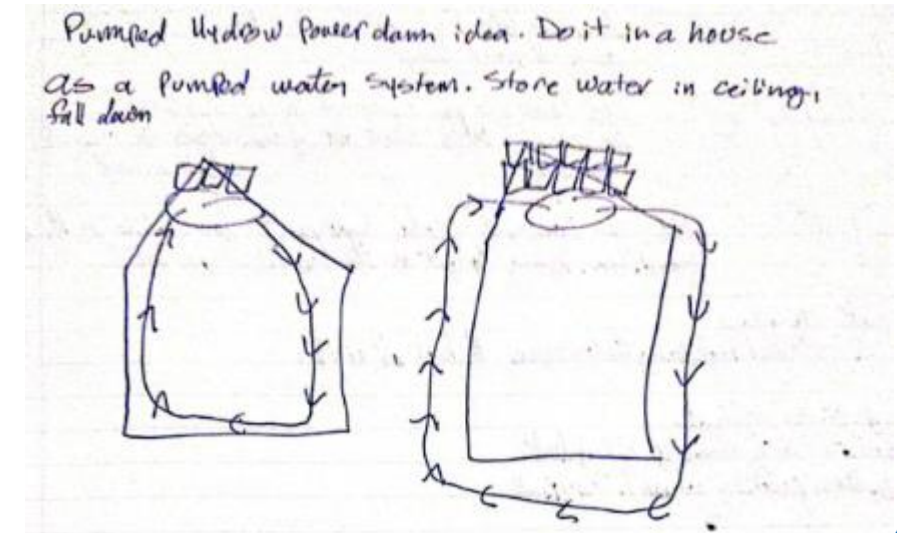 Pumped Hydrow Power damn idea. Do it in a house
as a Pumped water system. Store water in ceiling,
fall down